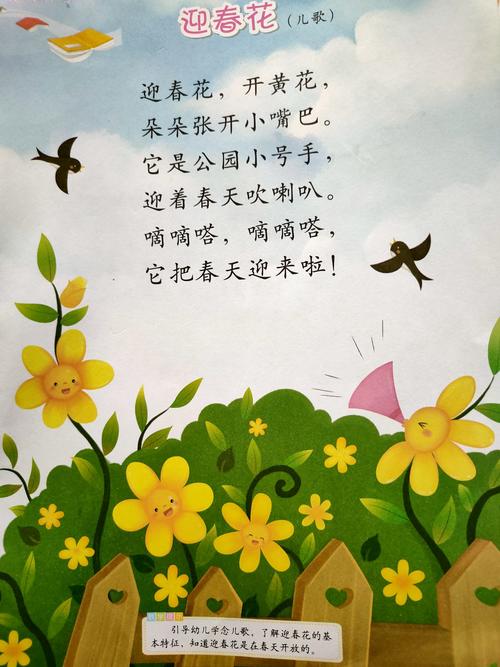 迎春花（儿歌）
迎春花，开黄花，
朵朵张开小嘴巴。
它是公园小号手，
迎着春天吹喇叭。
嘀嘀嗒，嘀嘀嗒，
它把春天迎来啦！
引导幼儿学念儿歌，了解迎春花的基
本特征、知道迎春花是在春天开放的。